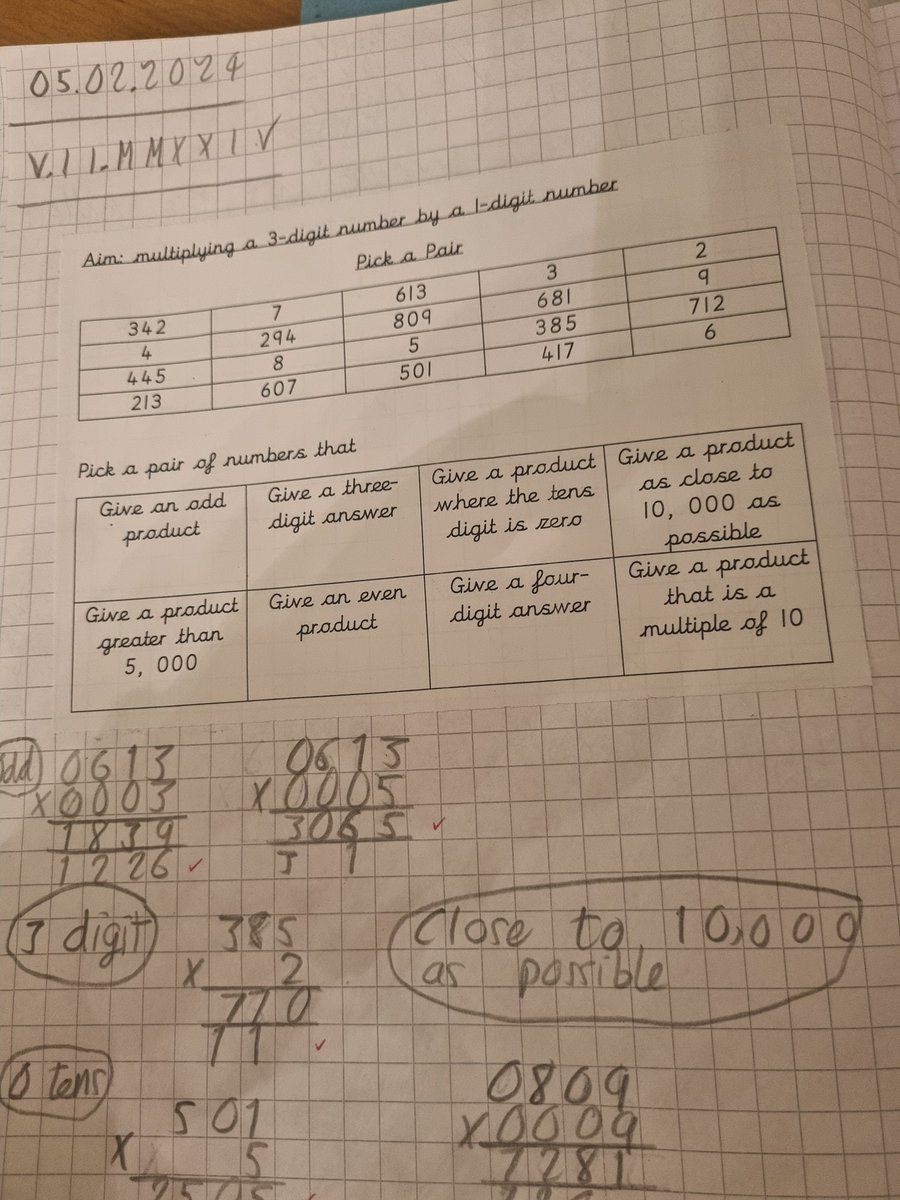 05.02.2024
V.II.MMXXIV
Aim: multiplying a 3-digit number by a 1-digit number
Pick a Pair
342 7 613 3 2
4 294 809 681 9
445 8 5 385 712
213 607 501 417 6
Pick a pair of numbers that
Give an odd product
Give a three-digit answer
Give a product where the tens digit is zero
Give a product as close to 10, 000 as possible
Give a product greater than 5, 000
Give an even product
Give a four-digit answer
Give a product that is a multiple of 10
0613
x0003
1839
1226
0613
x0005
3065
3 1
3 digit
385
x 2
770
11
Close to 10,000
as possible
0 tens
501
x 5
2505
0809
x0009
7281